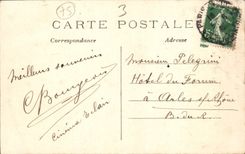 75
3
CARTE POSTALE
Correspondance
Adresse
Meilleurs souvenirs
C Bourgeois
Cinéma Eclair
Monsieur Pelegrini
Hôtel du Forum
à Arles s/Rhône
B.du.R.